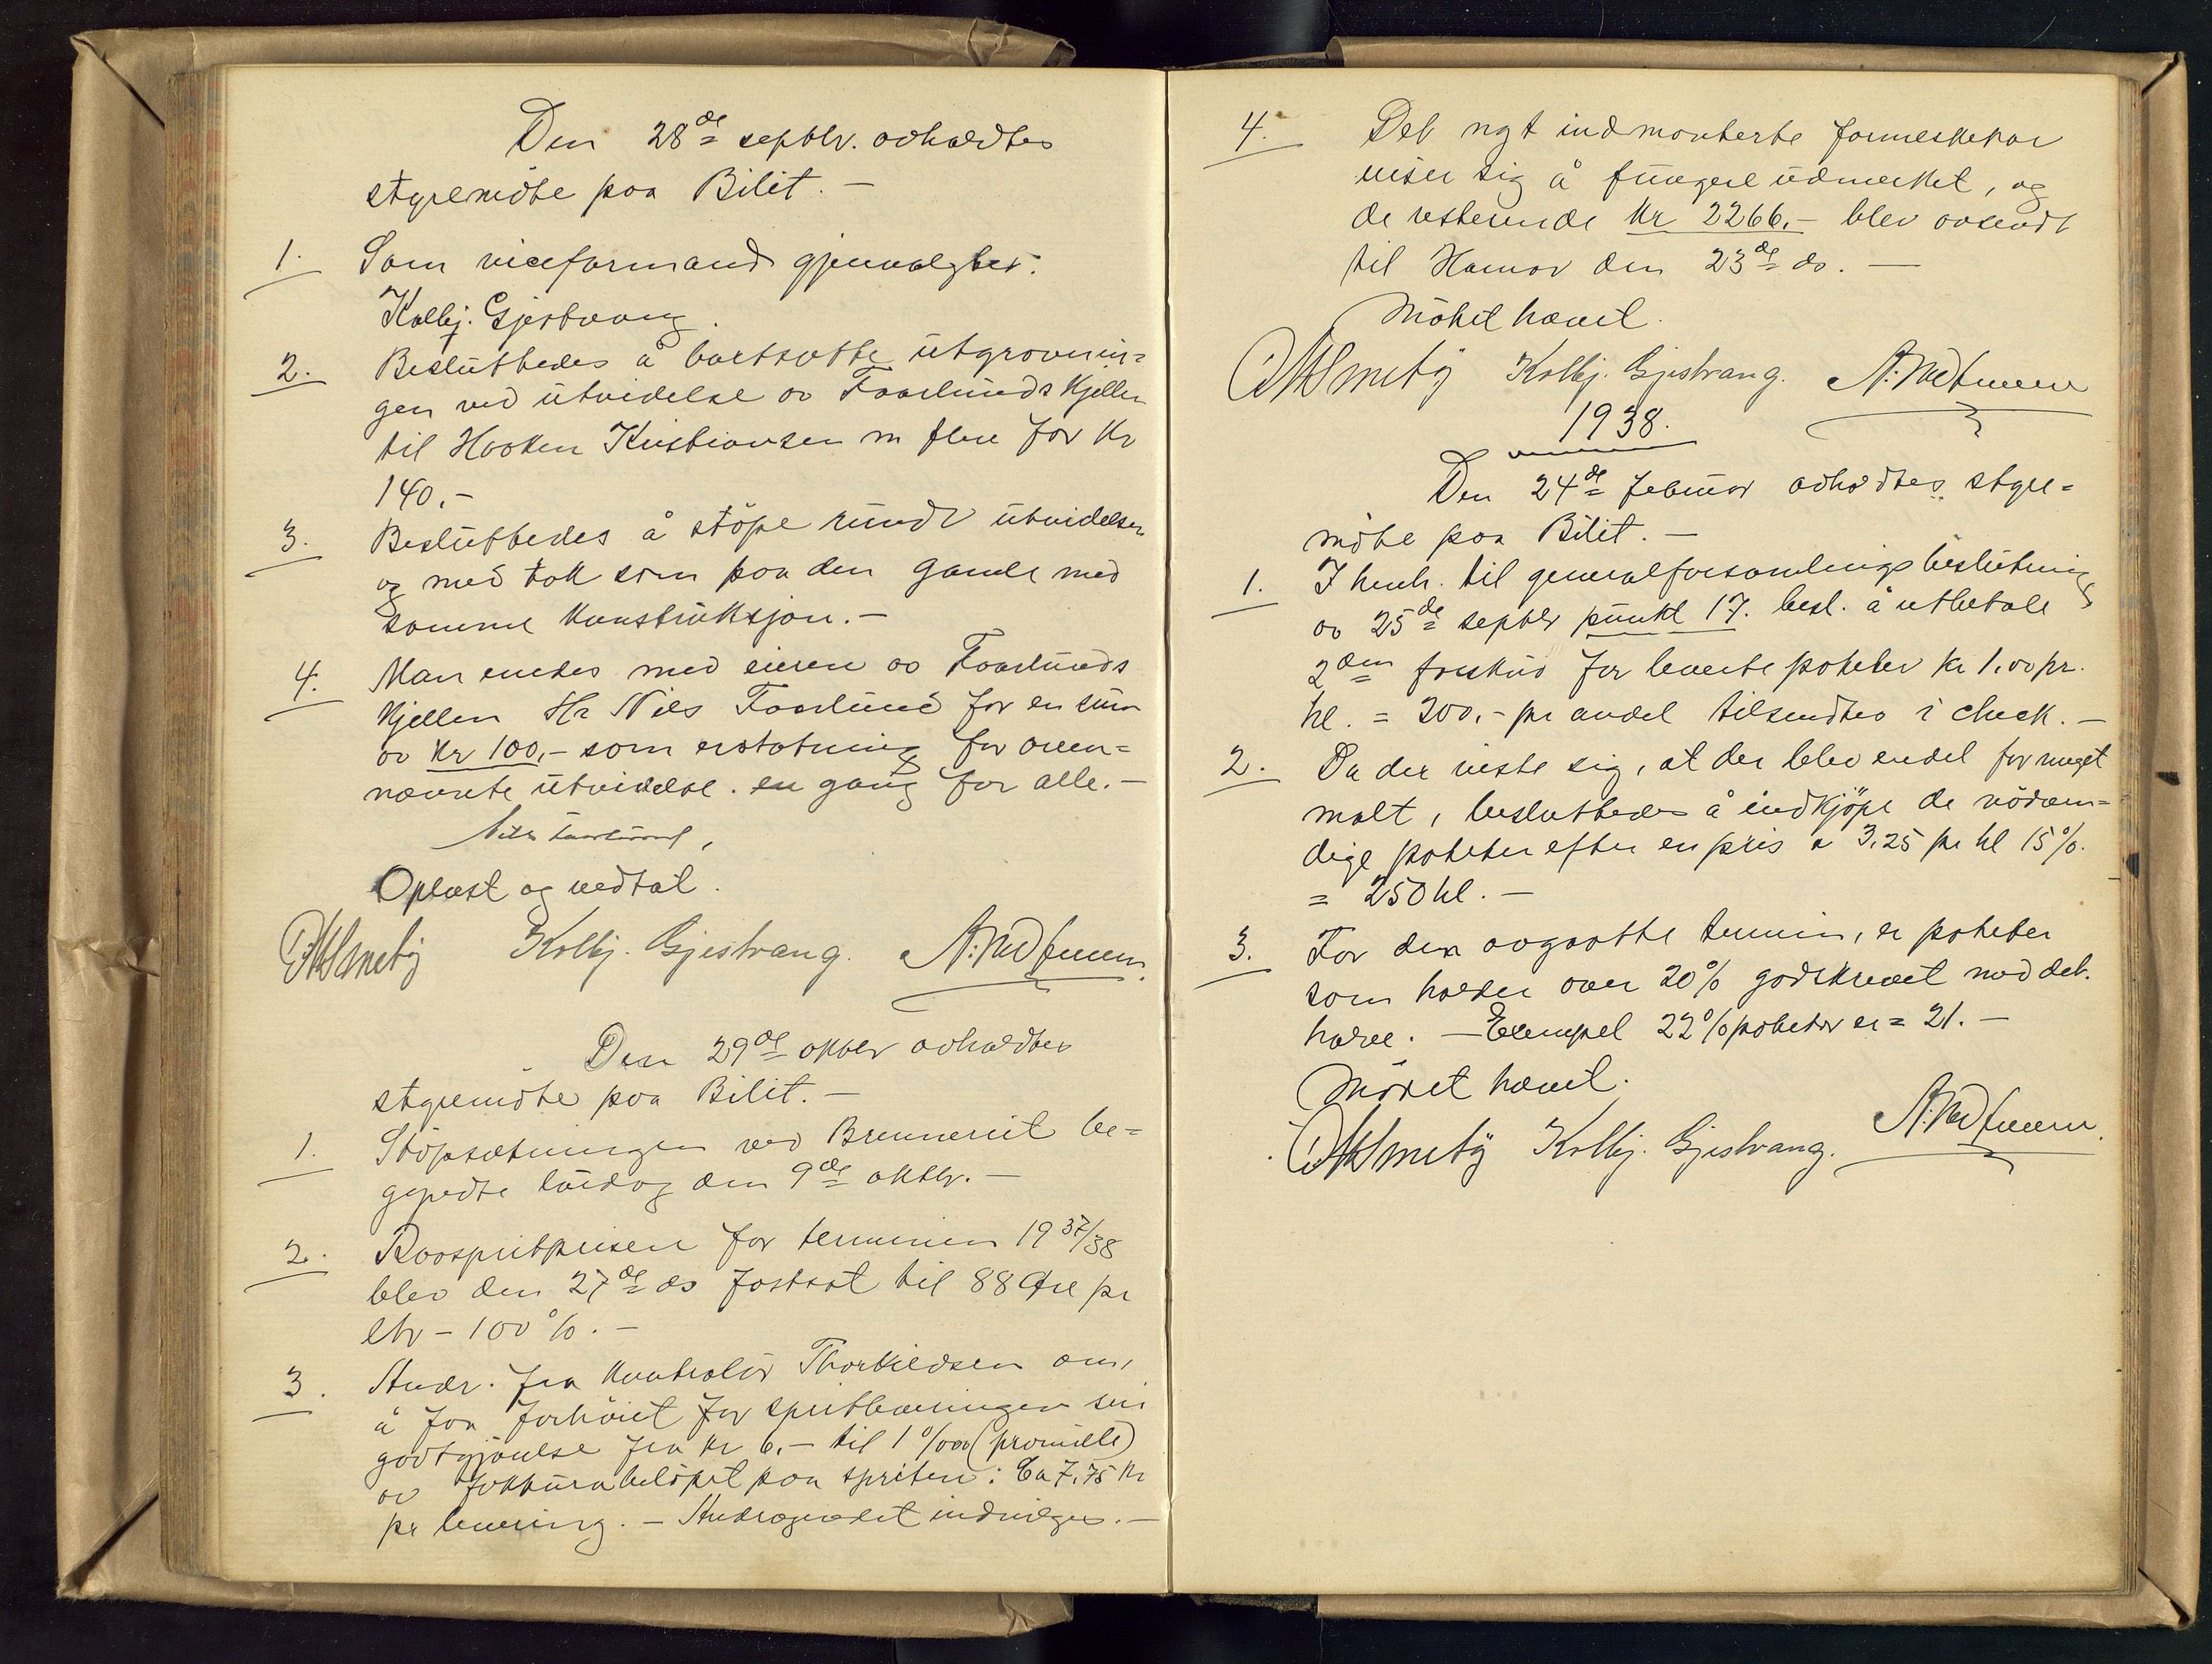 Den 28de septbr. avholdtes
styremöte paa Bilit. —
1. Som viceformand gjenvalgtes:
Kolbj. Gjestvang.
2. Besluttedes å bortsætte utgravnin=
gen ved utvidelse av Faarlunds kjeller
til Haaken Kristiansen m flere for kr
140.-
3. Besluttedes å stöpe rundt utvidelsen
og med tak som paa den gamle med
samme konstruksjon. —
4. Man enedes med eieren av Faarlunds
kjelleren Hr Nils Faarlund for en sum
av kr 100,- som erstatning for oven=
nævnte utvidelse. en gang for alle. —
Nils Faarlund,
Oplæst og vedtat.
Smeby Kolbj. Gjestvang. A.
Den 29de oktbr avholdtes
styremöte paa Bilit. —
1. Stöpsætningen ved Brenneriet be=
gyndte lördag den 9de oktbr. —
2. Raaspritprisen for terminen 19 37/38
blev den 27de ds fastsat til 88 Øre pr
ltr - 100 %. —
3. Andr. fra kontrolör Thorkildsen om,
å faa forhöiet for spritleveringen sin
godtgjörelse fra kr 6.- til 1 %oo (promille)
av fakturabelöpet paa spriten: Ca 7,75 kr
pr levering. — Andragendet indvilges. —
4. Det nyt indmonterte formeskekar
viser sig å fungere udmerket, og
de resterende kr 2266.- blev avsendt
til Hamar den 23de ds. —
Mötet hævet.
Smeby Kolbj. Gjestvang. A.
1938.
Den 24de februar avholdtes styre=
möte paa Bilit. —
1. I henh. til generalforsamlings beslutning
av 25de septbr punkt 17. besl. å utbetale
2den forskud for leverte poteter kr 1,00 pr.
hl. = 200,- pr andel tilsendtes i check. —
2. Da der viste sig, at der blev endel for meget
malt, besluttedes å indkjöpe de nödven=
dige poteter efter en pris a 3,25 pr hl 15%.
= 250 hl. —
3. For den avgaatte termin, er poteter
som holder over 20% godskrevet med det.
halve. — Exempel 22% poteter er = 21. —
Mötet hævet.
Smeby Kolbj. Gjestvang. A.